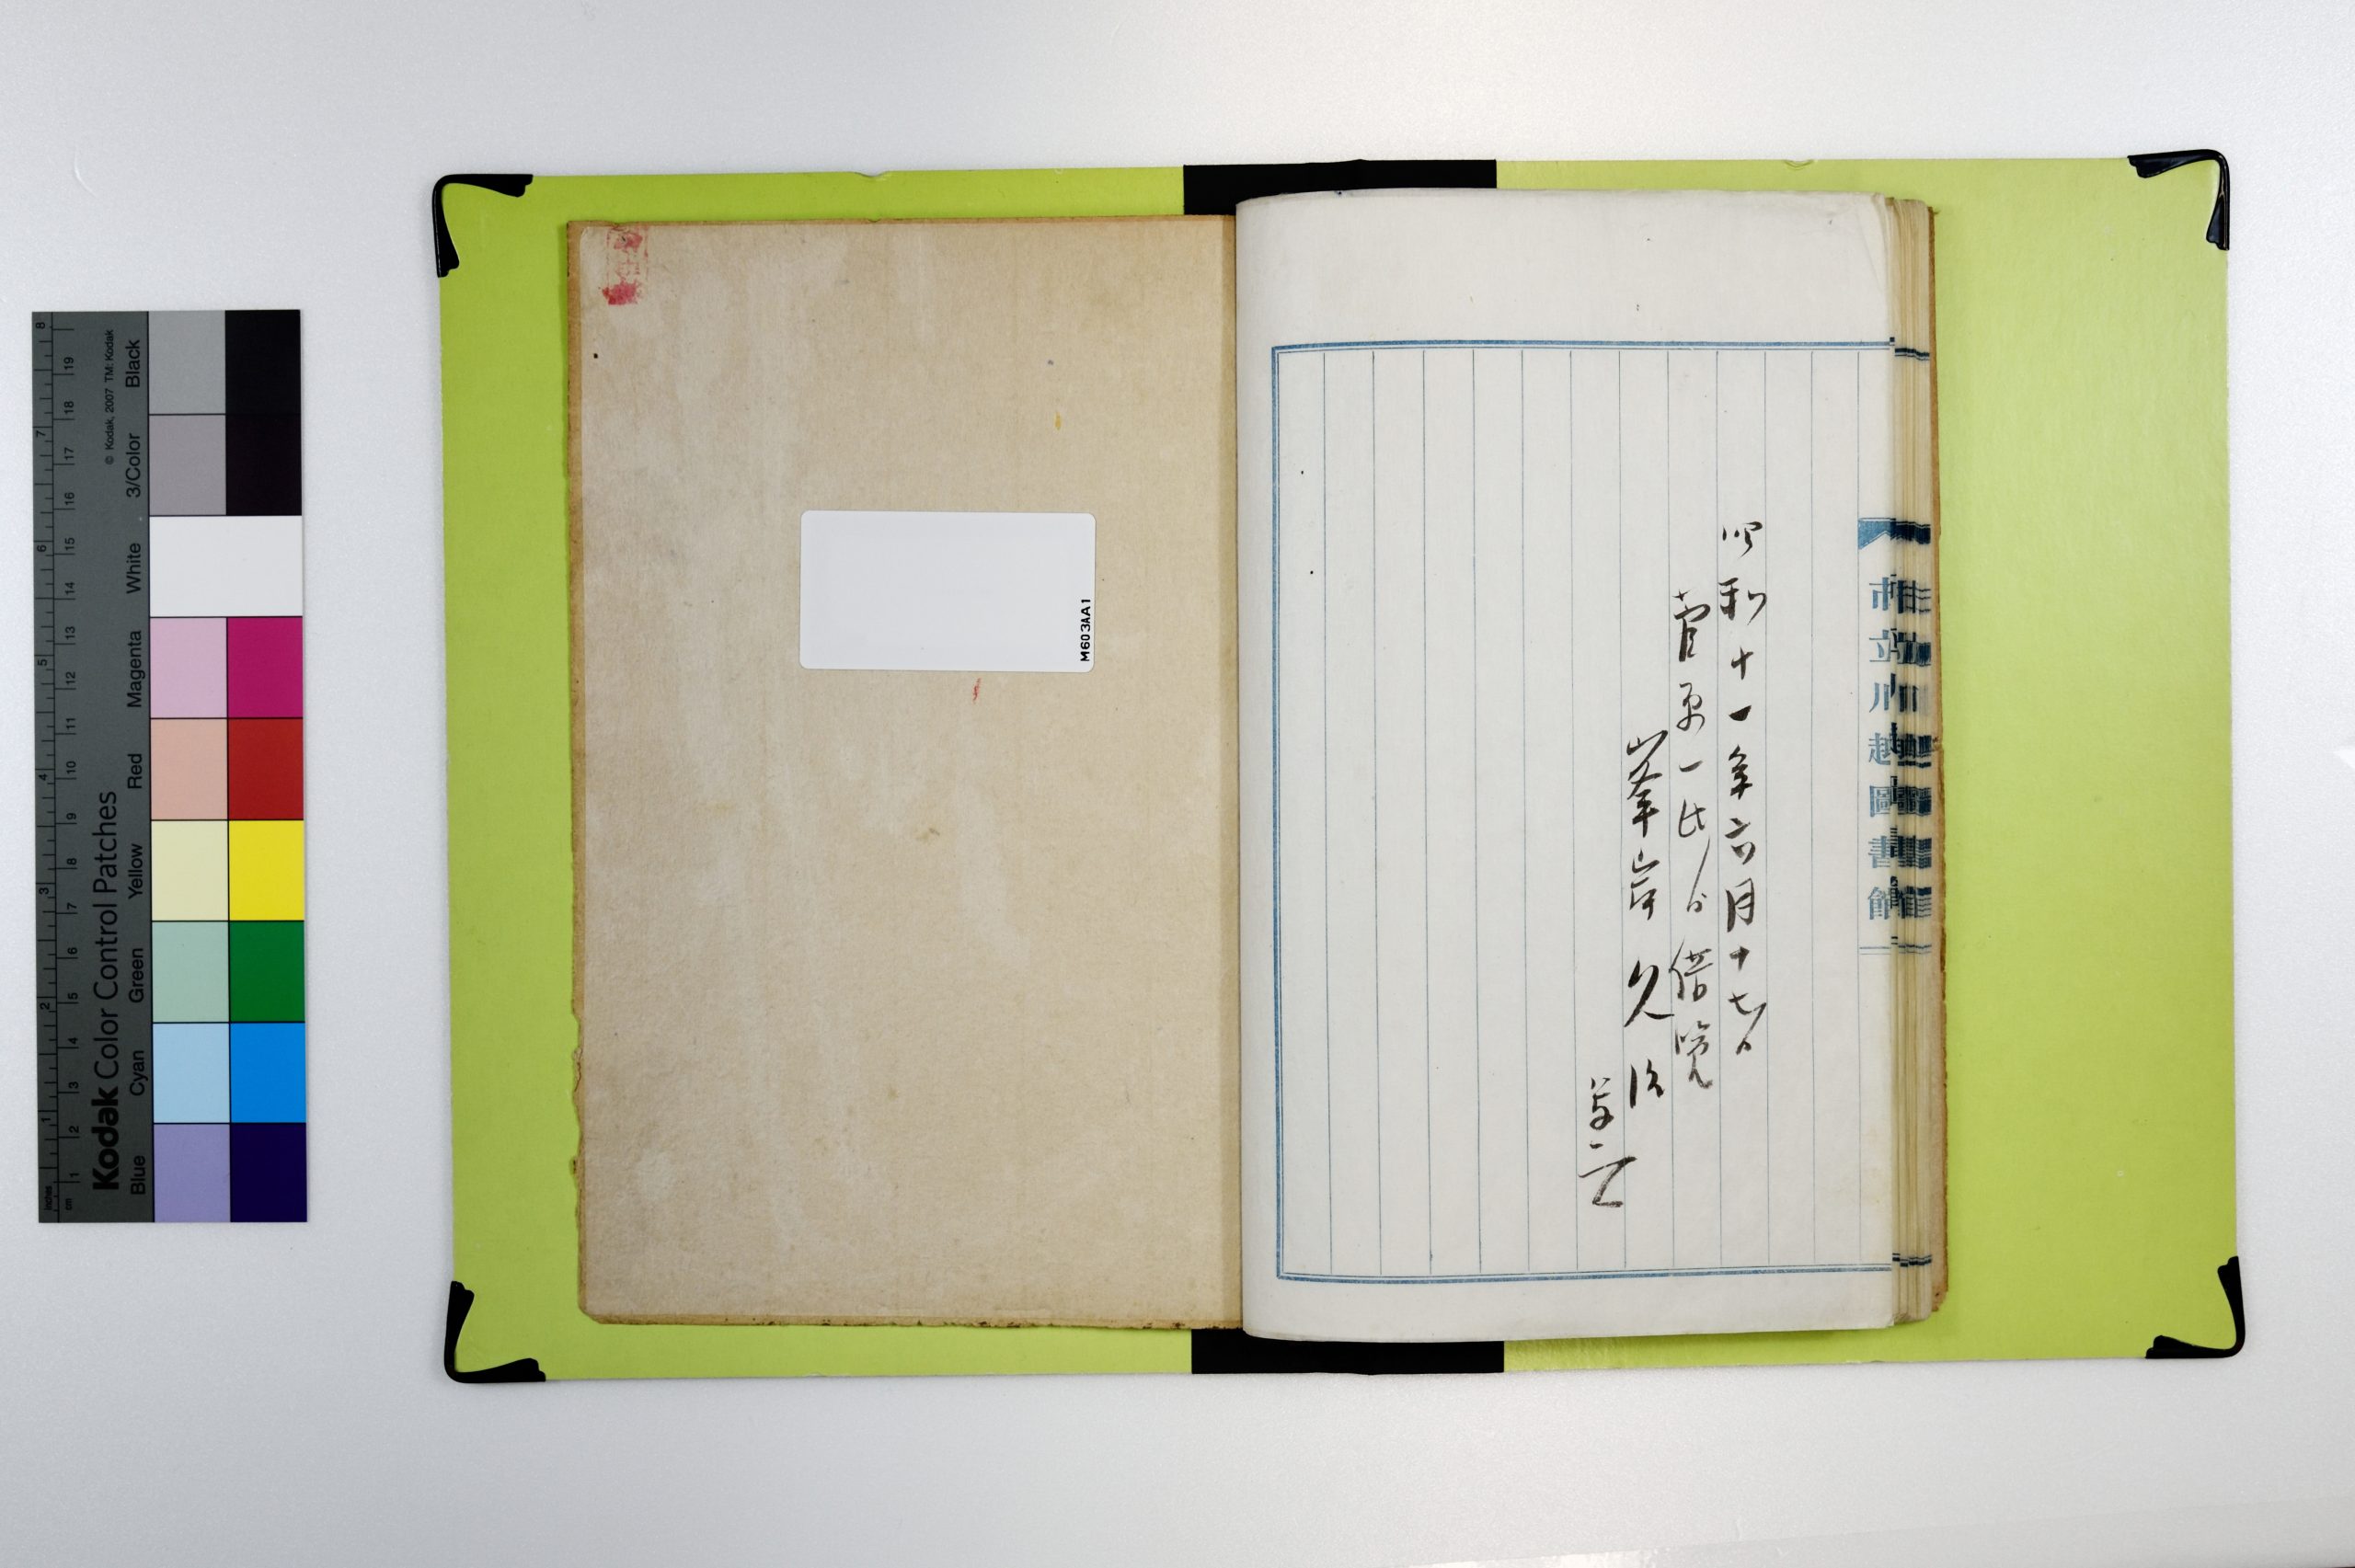 市立川越圖書館
昭和十一年六月十七日
菅原一氏ゟ借覧
峯岸久治
写之
Kodak Color Control Patches
© Kodak, 2007 TM: Kodak
Blue Cyan Green Yellow Red Magenta White 3/Color Black
inches 1 2 3 4 5 6 7 8
cm 1 2 3 4 5 6 7 8 9 10 11 12 13 14 15 16 17 18 19
M603AA1